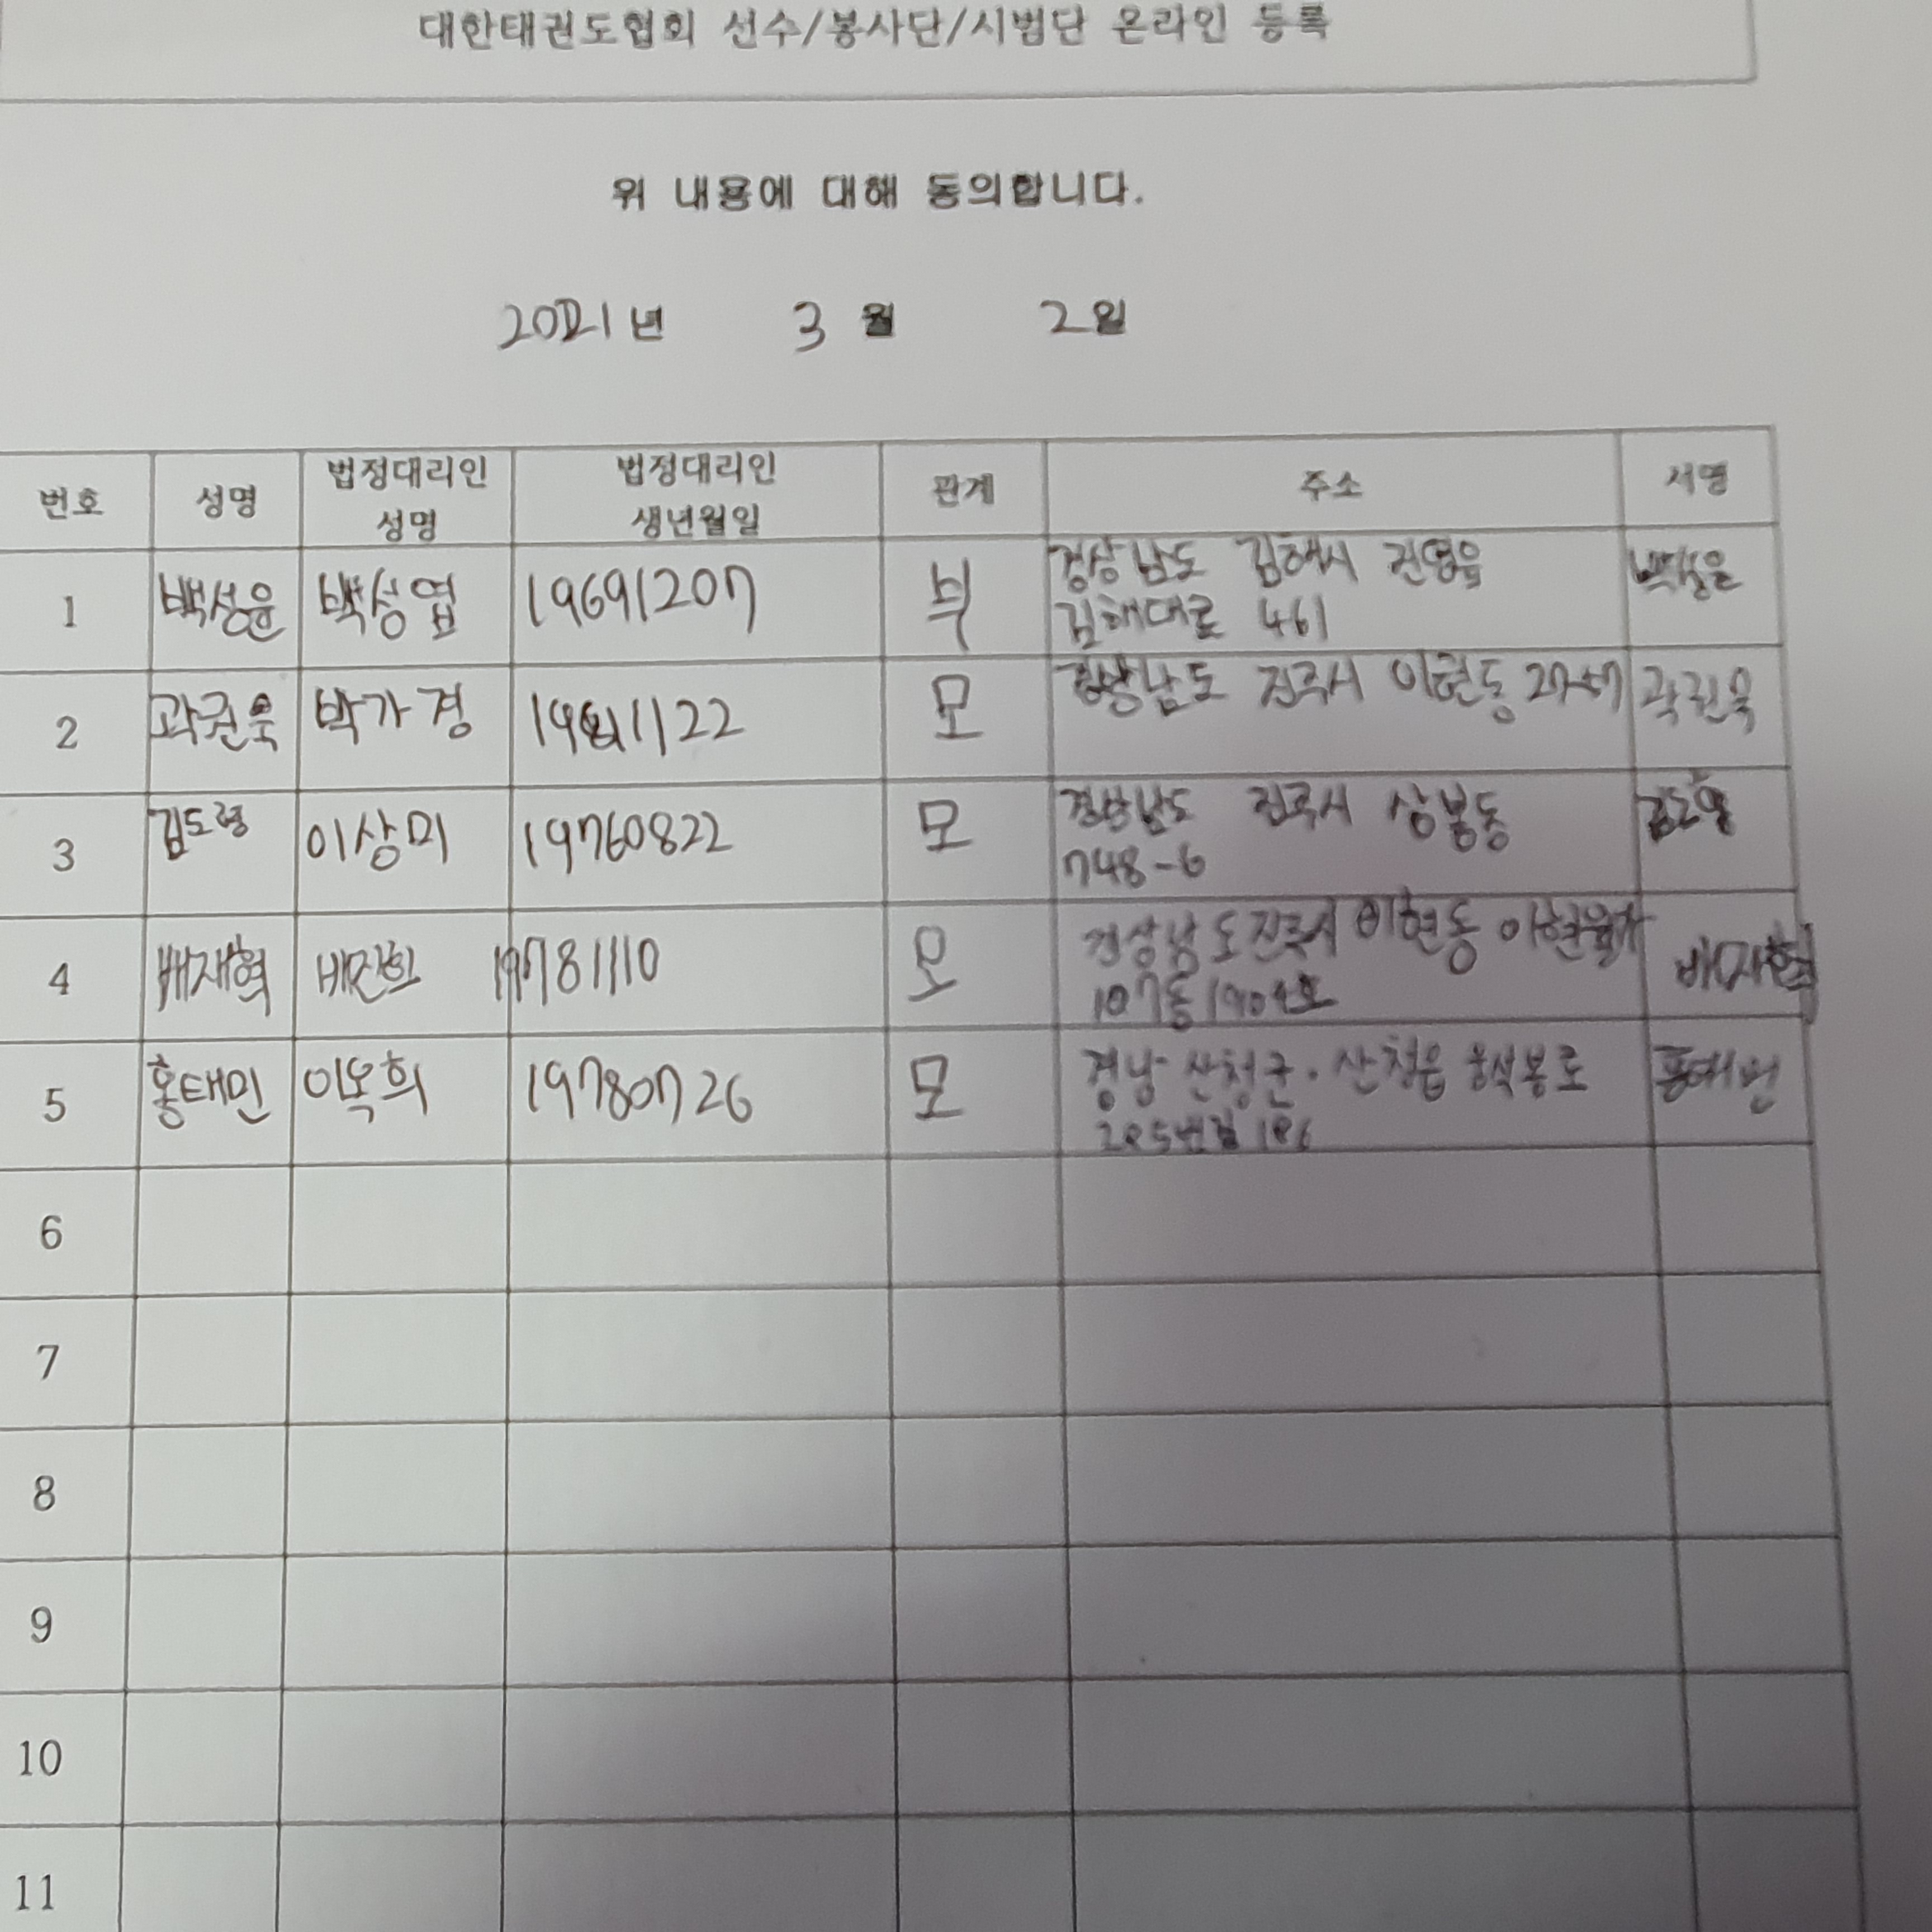 대한태권도협회 선수/봉사단/시범단 온라인 등록
위 내용에 대해 동의합니다.
2021년 3월 2일
번호 성명 법정대리인 성명 법정대리인 생년월일 관계 주소 서명
1 백성윤 백승엽 19691207 부 경상남도 김해시 진영읍 백성윤
김해대로 461
2 곽권욱 박가경 1981122 모 경상남도 진주시 이현동 27-47 곽권욱
3 김도형 이상미 19760822 모 경상남도 진주시 상봉동
748-6
4 배재혁 배진희 19781110 모 경상남도 진주시 이현동 배재혁
107동 1904호
5 홍태민 이옥희 19780726 모 경남 산청군. 산청읍 웅석봉로 홍태민
285번길 186
6
7
8
9
10
11